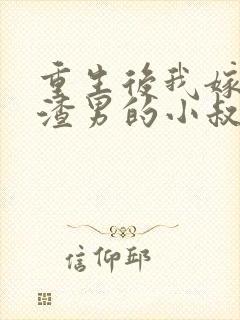 重生後我嫁
渣男的小叔
信仰邱